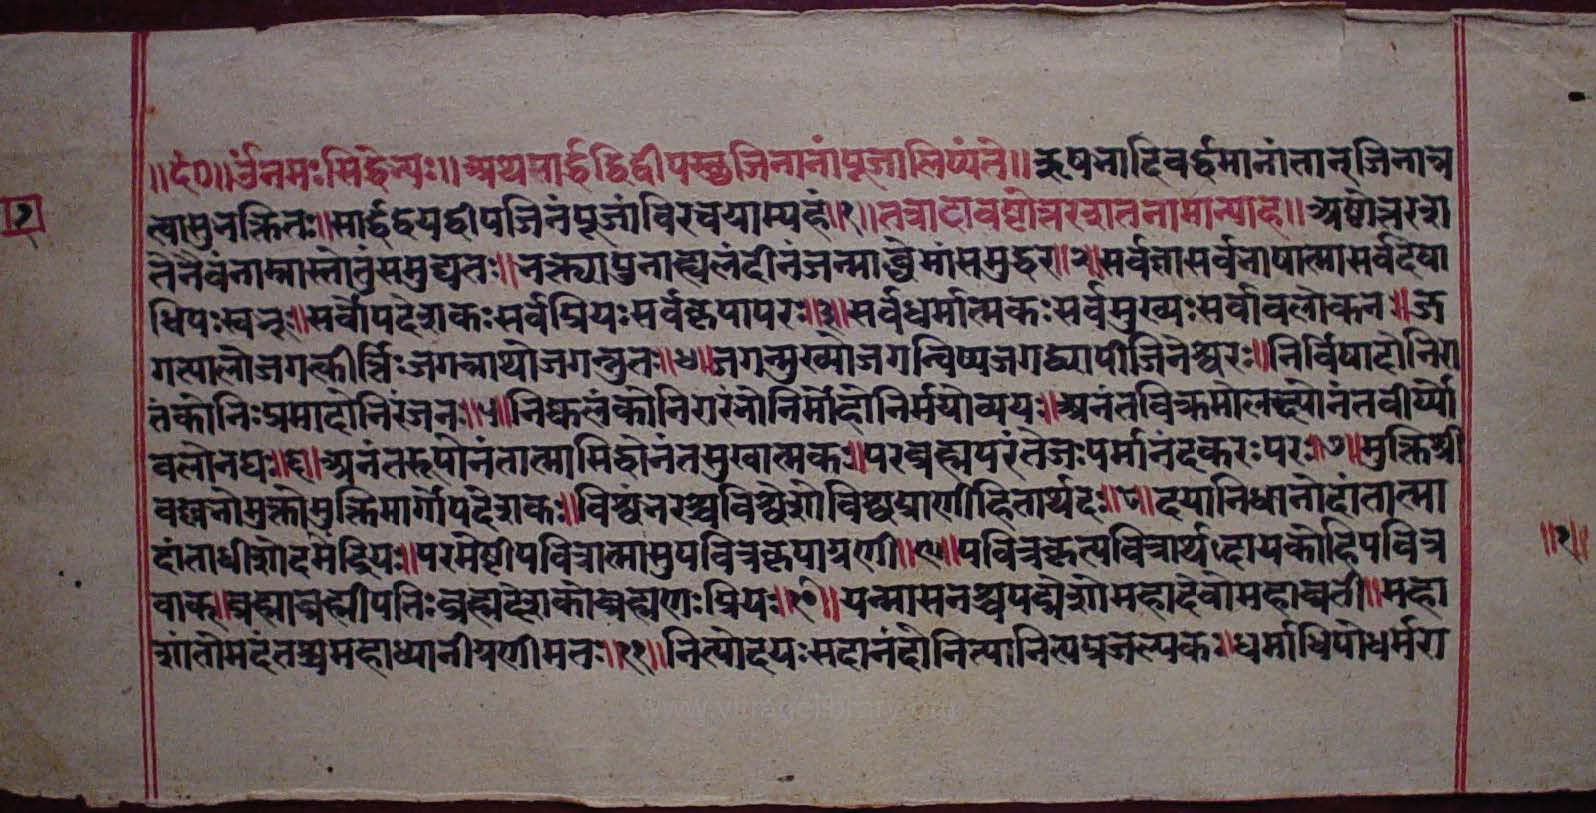 ॥ई०॥ ॐ नमः सिद्धेभ्यः॥ अथ सार्द्धद्विद्वीपस्छजिनानां पूजा लिष्यंते॥ ऋषभादिवर्द्धमानांतान् जिनान्न
त्वा सुभक्तितः॥ सार्द्धद्वयद्वीपजिनंपूजां विरचयाम्यहं॥१॥ तत्रादावष्टोत्तरशतनामान्याह॥ अष्टोत्तरश
तेनैवं नाम्नास्तोतुं समुद्यतः॥ भक्त्या पुनाह्यलं दीनं जन्माब्धेर्मां समुद्धर॥२॥ सर्वज्ञा सर्वभाषात्मा सर्वदेवा
धिपः स्वभूः॥ सर्वोपदेशकः सर्वप्रियः सर्वकृपापरः॥३॥ सर्वधर्मात्मकः सर्वमुख्यः सर्वावलोकन॥ ज
गत्पालो जगत्कीर्त्तिः जगन्नाथो जगन्नुतः॥४॥ जगन्मुख्यो जगन्विष्य जगद्व्यापी जिनेश्वरः॥ निर्विषादो निरा
तंको निःप्रमादो निरंजनः॥५॥ निष्कलंको निरारंभो निर्मोहो निर्मयो व्ययः॥ अनंतविक्रमो लक्ष्यो नंतवीर्य्यो
वलोनघः॥६॥ अनंतरूपो नंतात्मा सिद्धो नंतसुखात्मकः॥ परब्रह्म परं तेजः पर्मानंदकरः परः॥७॥ मुक्तिश्री
वल्लभो मुक्तो मुक्तिमार्गोपदेशकः॥ विश्वंभरश्च विश्वेशो विश्वप्राणीहितार्थदः॥८॥ दयानिधानो दांतात्मा
दांताधीशो दमेंद्रियः॥ परमेष्टी पवित्रात्मा सुपवित्रकृपाग्रणी॥९॥ पवित्रकृत्पवित्रार्थदायको हि पवित्र
वाक्॥ ब्रह्मा ब्रह्मीपतिः ब्रह्मदेशको ब्रह्मणः प्रियः॥१०॥ पद्मासनश्च पद्मेशो महादेवो महाव्रती॥ महा
शांतो मदंतश्च महाध्यानीग्रणीमतः॥११॥ नित्योदयः सदानंदो नित्यानित्यप्रजल्पकः॥ धर्माधिपो धर्मरा
२
॥१॥
www.vitragelibrary.org